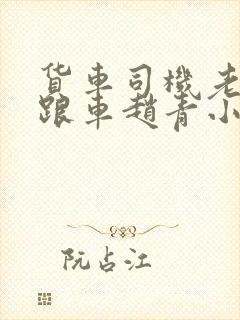 货车司機老
跟车趙青小
阮占江